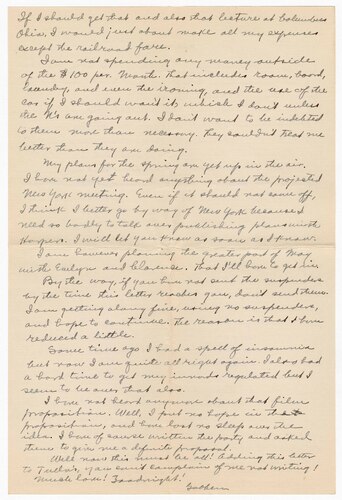 If I should get that and also that lecture at Columbus
Ohio, I would just about make all my expenses
except the railroad fare.
I am not spending any money outside
of the $100 per. Month. That includes room, board,
laundry, and even the ironing, and the use of the
car if I should want it, which I don't unless
the are going out. I don't want to be indebted
to them more than necessary. They couldn't treat me
better than they are doing.
My plans for the spring are yet up in the air.
I have not yet heard anything about the projected
New York meeting. Even if it should not come off,
I think I better go by way of New York because I
need so badly to talk over publishing plans with
Harpers. I will let you know as soon as I know.
I am however planning the greater part of May
with Evelyn and Clarence. That I'll have to get in.
By the way, if you have not sent the suspenders
by the time this letter reaches you, don't send them.
I am getting along fine, using no suspenders,
and hope to continue. The reason is that I have
reduced a little.
Some time ago I had a spell of insomnia
but now I am quite all right again. I also had
a hard time to get my innards regulated but I
seem to be over that also.
I have not heard anymore about that film
proposition. Well, I put no hope in the
proposition, and have lost no sleep over the
idea. I have of course written the party and asked
them to give me a definite proposal.
Well now this must be all! Adding this letter
to you can't complain of me not writing!
Much love! Goodnight!
Father